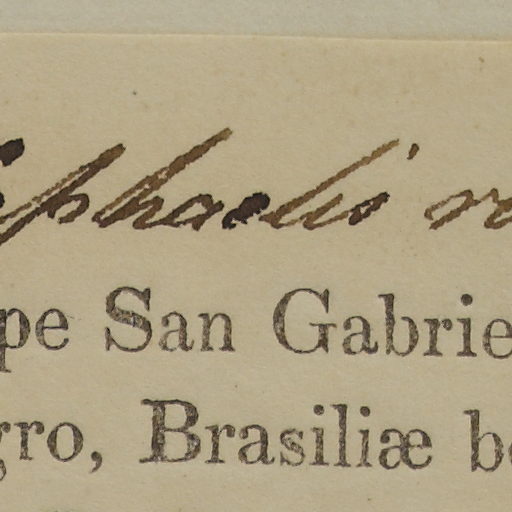 ephaelis
pe San Gabrie
gro, Brasiliæ bo